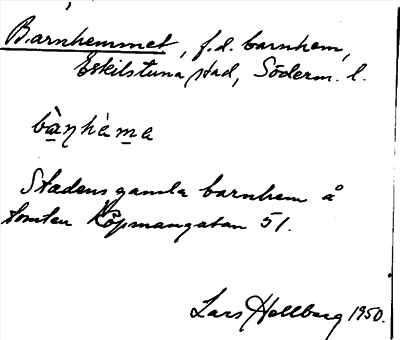 Barnhemmet, f.d. barnhem,
Eskilstuna stad, Söderm. l.
bàṇhèma
Stadens gamla barnhem å
tomten Köpmangatan 51.
Lars Hellberg 1950.